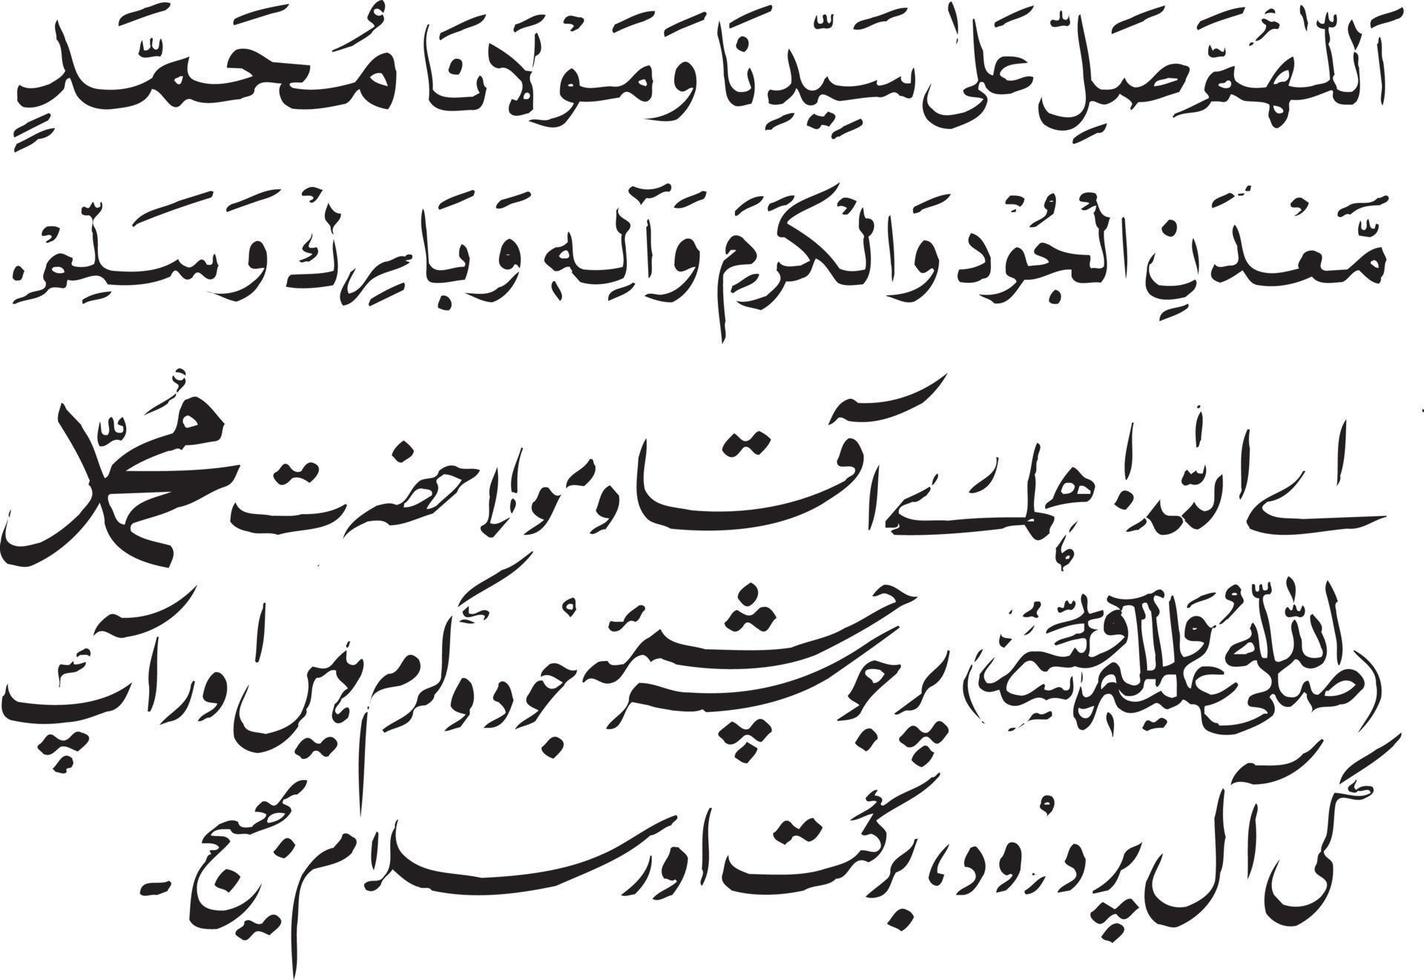 اَللّٰهُمَّ صَلِّ عَلٰى سَيِّدِنَا وَمَوْلَانَا مُحَمَّدٍ
مَّعْدَنِ الْجُوْدِ وَالْكَرَمِ وَآلِهٖ وَبَارِكْ وَسَلِّمْ.
اے اللہ! ہمارے آقا و مولا حضرت محمدؐ
(صلی اللہ علیہ وآلہ وسلم) پر جو سرچشمۂ جود و کرم ہیں اور آپ
کی آل پر درود، برکت اور سلام بھیج۔